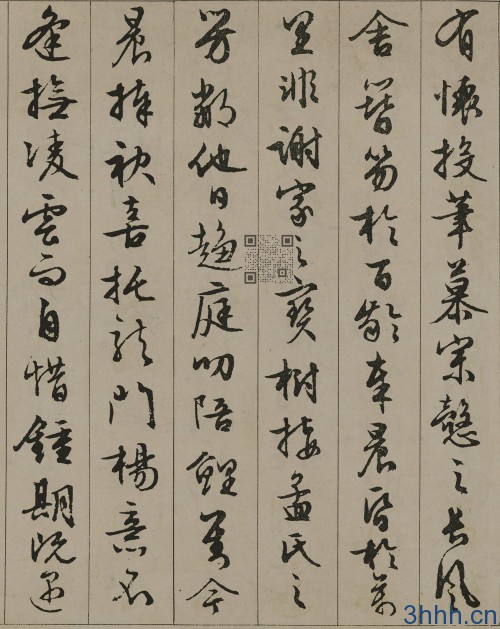 有懷投筆慕宗慤之長風
舍簪笏於百齡奉晨昏於萬
里非謝家之寶樹接孟氏之
芳鄰他日趨庭叨陪鯉對今
晨捧袂喜托龍門楊意不
逢撫凌雲而自惜鍾期既遇
3hhh.cn